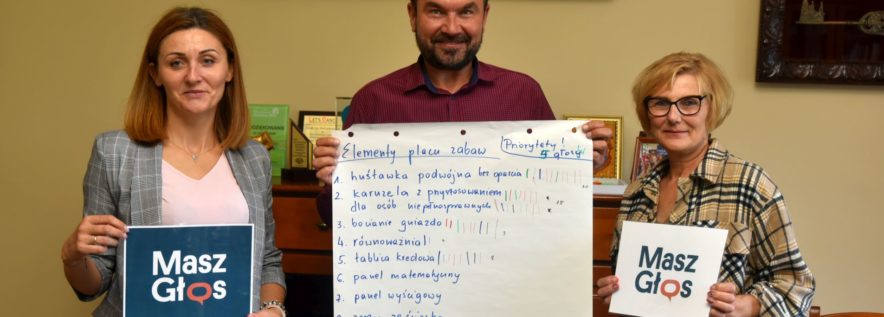 Elementy placu zabaw
Priorytety!
5 głosy
1. huśtawka podwójna bez oparcia
2. karuzela z przystosowaniem
dla osób niepełnosprawnych
3. bocianie gniazdo
4. równoważnia
5. tablica kredowa
6. panel matematyczny
7. panel wyścigowy
Masz
Głos
Masz
Głos